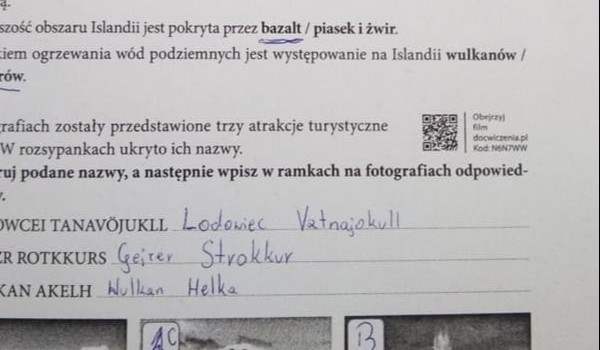 ą.
szość obszaru Islandii jest pokryta przez bazalt / piasek i żwir.
kiem ogrzewania wód podziemnych jest występowanie na Islandii wulkanów /
rów.
rafiach zostały przedstawione trzy atrakcje turystyczne
W rozsypankach ukryto ich nazwy.
Obejrzyj
film
docwiczenia.pl
Kod: N6N7WW
ruj podane nazwy, a następnie wpisz w ramkach na fotografiach odpowied-
y.
OWCEI TANAVÖJUKLL Lodowiec Vatnajokull
ZR ROTKKURS Gejzer Strokkur
KAN AKELH Wulkan Helka
C
B